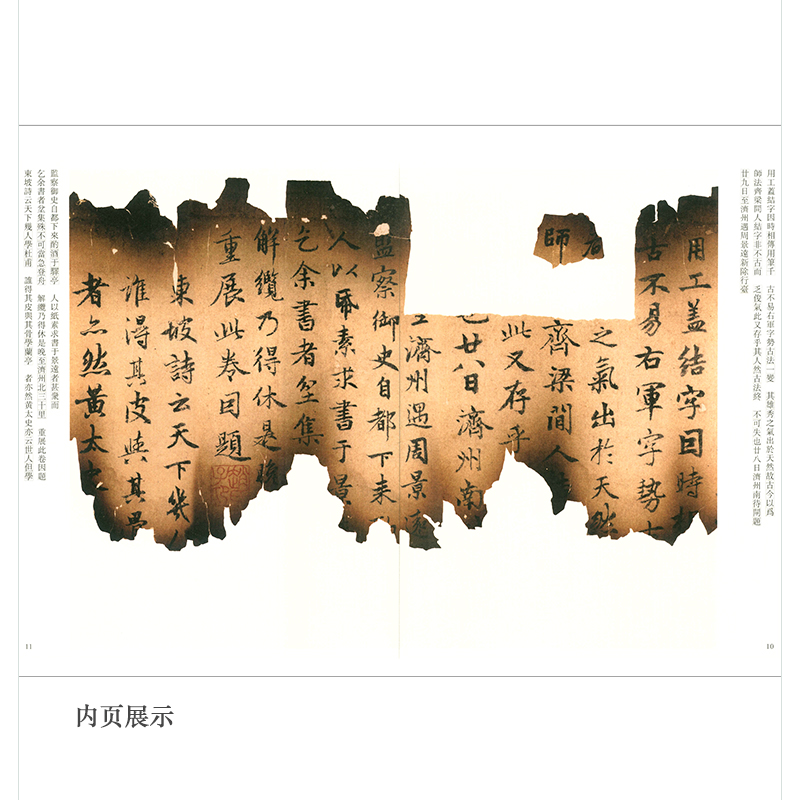 用工蓋結字因時相傳用筆千　古不易右軍字勢古法一變　其雄秀之氣出於天然故古今以爲
師法齊梁間人結字非不古而　乏俊氣此又存乎其人然古法終　不可失也廿八日濟州南待閘題
廿九日至濟州遇周景遠新除行臺
用工盖結字因時
古不易右軍字勢
之氣出於天然
師
齊梁間人
此又存乎
廿八日濟州南
濟州遇周景遠
監察御史自都下来
人以帋素求書于景
乞余書者坌集
解纜乃得休是晚
重展此卷因題
東坡詩云天下幾人
誰得其皮與其骨
者亦然黄太史
監察御史自都下來酌酒于驛亭　人以紙素求書于景遠者甚衆而
乞余書者坌集殊不可當急登舟　解纜乃得休是晚至濟州北三十里　重展此卷因題
東坡詩云天下幾人學杜甫　誰得其皮與其骨學蘭亭　者亦然黃太史亦云世人但學
10
11
内页展示